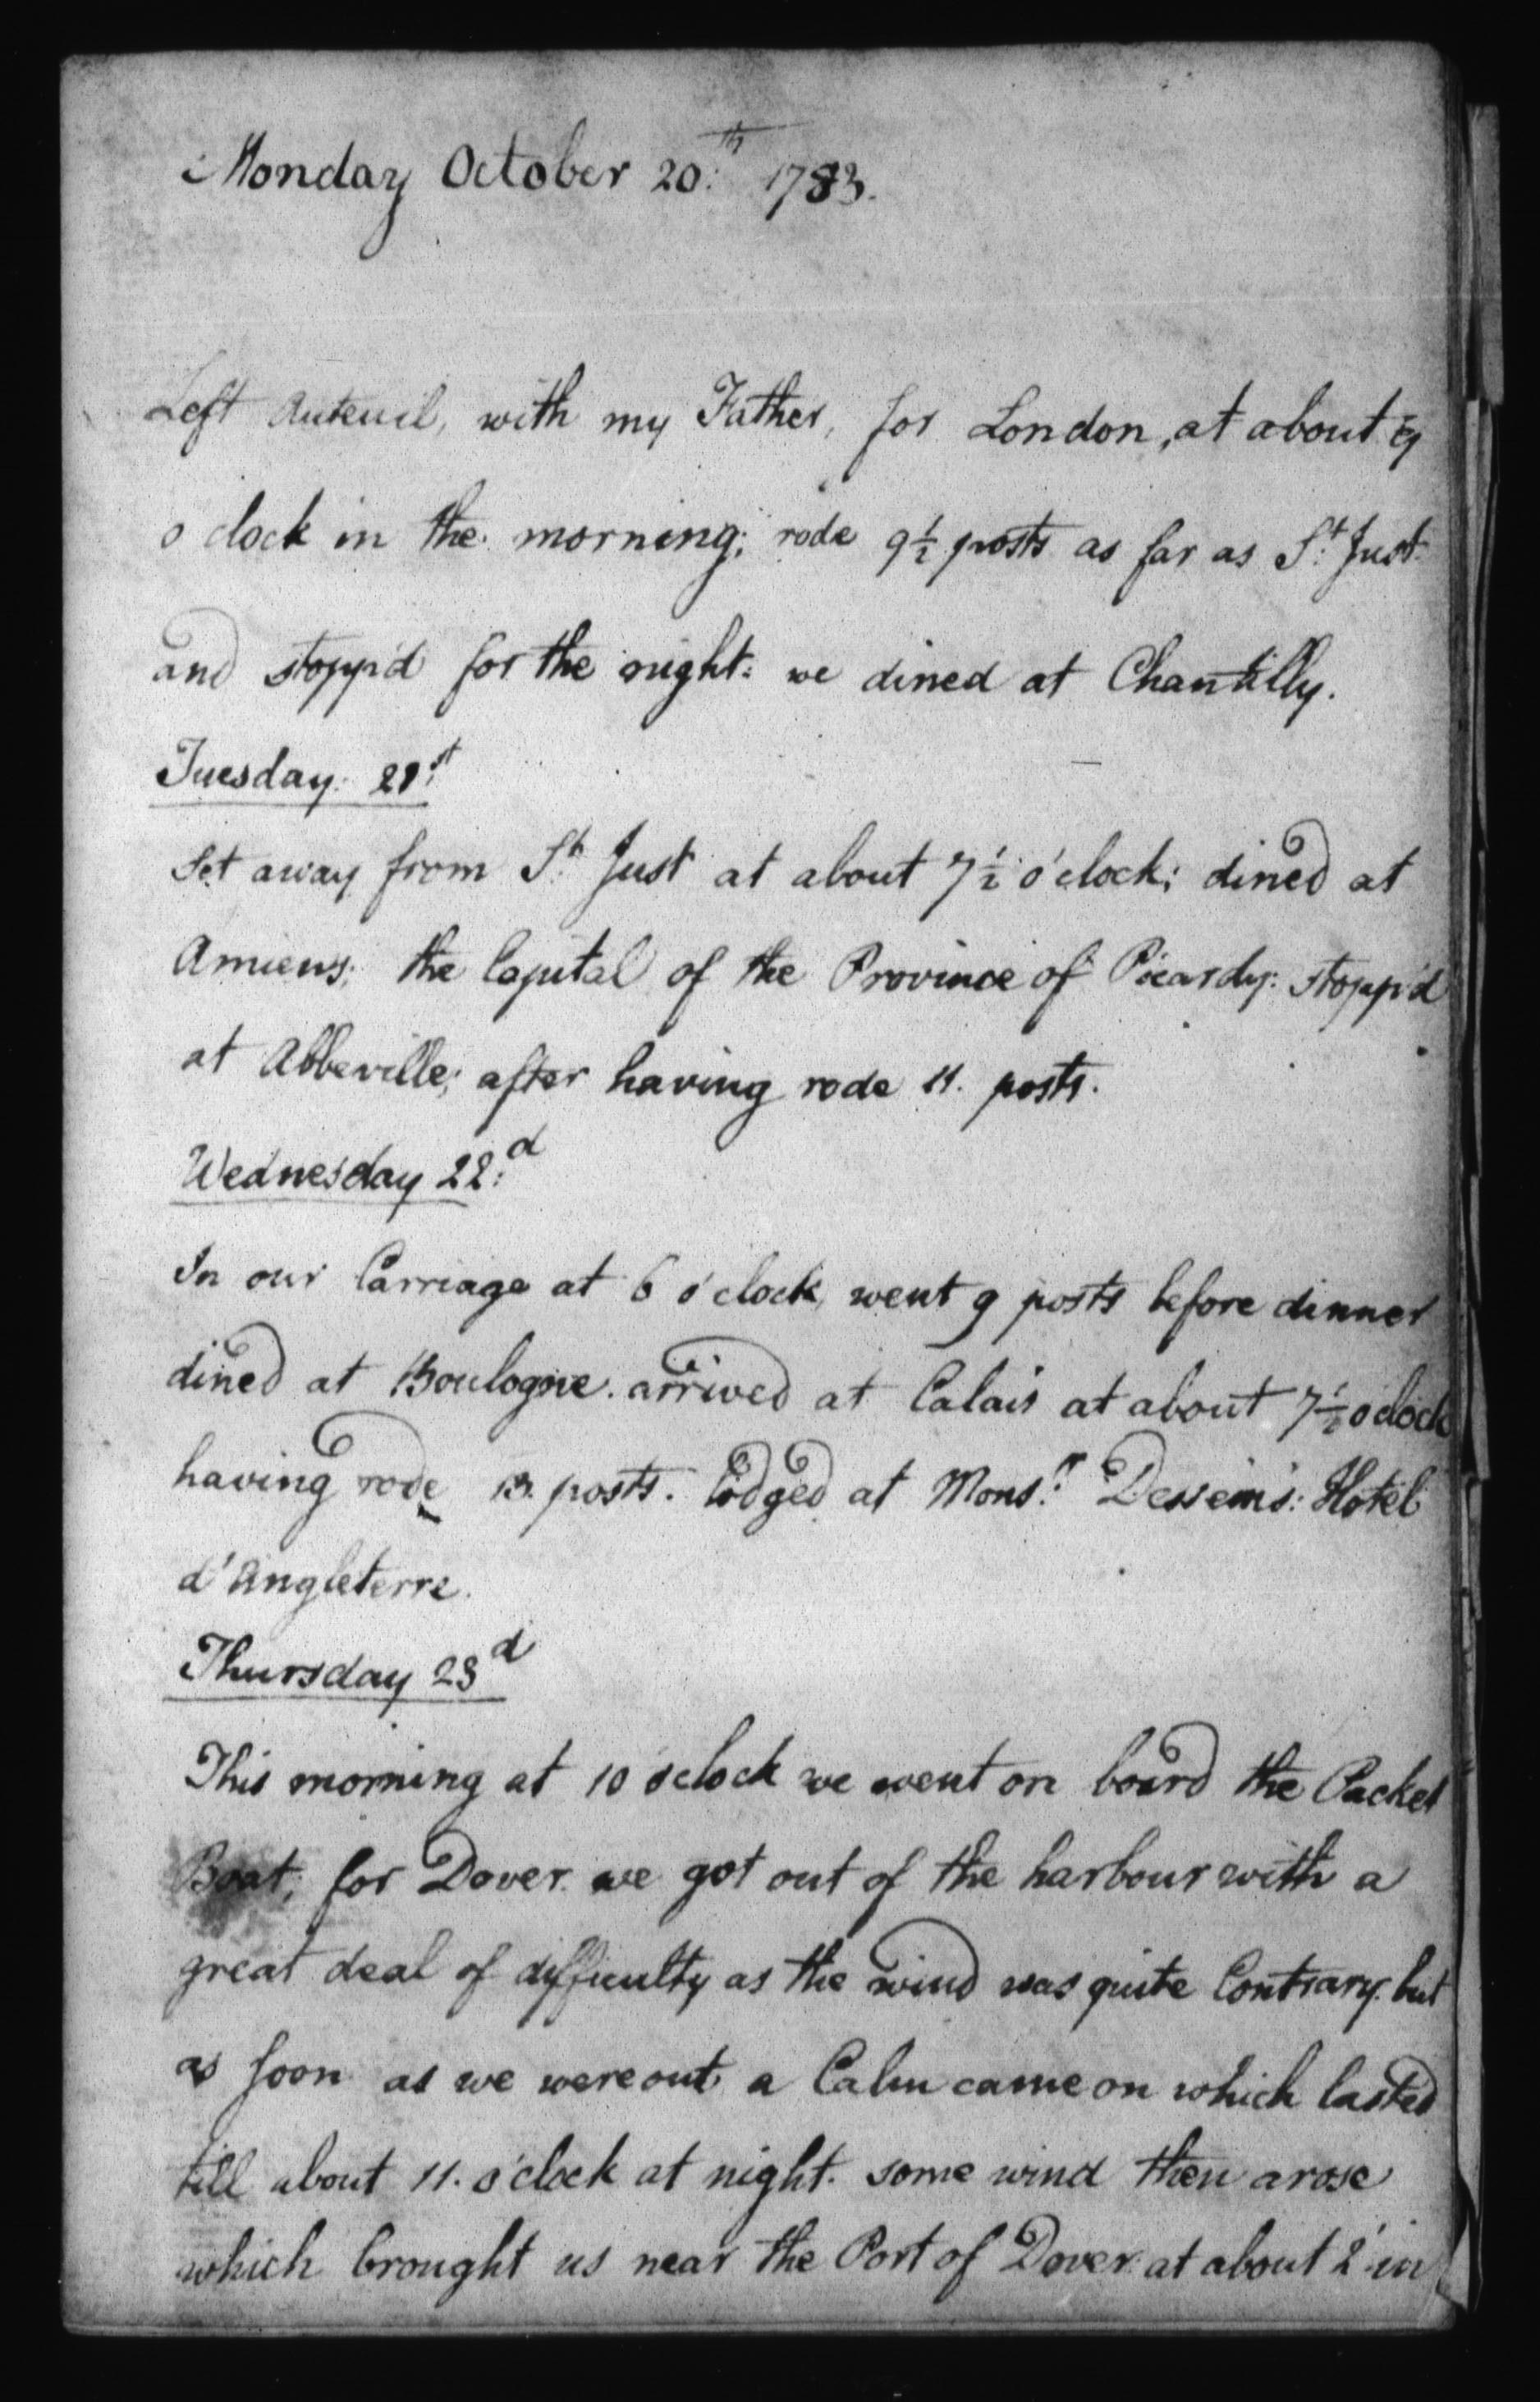 Monday October 20:th 1783.
Left Auteuil, with my Father, for London, at about
o clock in the morning; rode 9½ posts as far as St. Just
and stopp'd for the night: we dined at Chantilly.
Tuesday 21:st
Set away from St. Just at about 7½ o'clock; dined at
Amiens; the Capital of the Province of Picardy: stopp'd
at Abbeville; after having rode 11. posts.
Wednesday 22:d
In our Carriage at 6 o'clock, went 9 posts before dinner
dined at Boulogne. arrived at Calais at about 7½ o'clock
having rode 13. posts. lodged at Mons:r Dessein's: Hotel
d'Angleterre.
Thursday 23d
This morning at 10 o'clock we went on board the Packet
Boat; for Dover. we got out of the harbour with a
great deal of difficulty as the wind was quite Contrary. but
as soon as we were out, a Calm came on which lasted
till about 11. o'clock at night. some wind then arose
which brought us near the Port of Dover at about 2 in